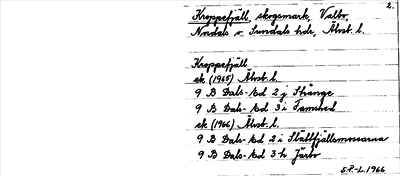 2.
Kroppefjäll, skogsmark, Valbo,
Nordals o. Sundals hdr, Älvsb. l.
Kroppefjäll
ek (1965) Älvsb. l.
9 B Dals-Ed 2 j Stränge
9 B Dals-Ed 3 i Tamsted
ek (1966) Älvsb. l.
9 B Dals-Ed 2 i Slättfjällsmossarna
9 B Dals-Ed 3 h Järbo
S.F.-L. 1966